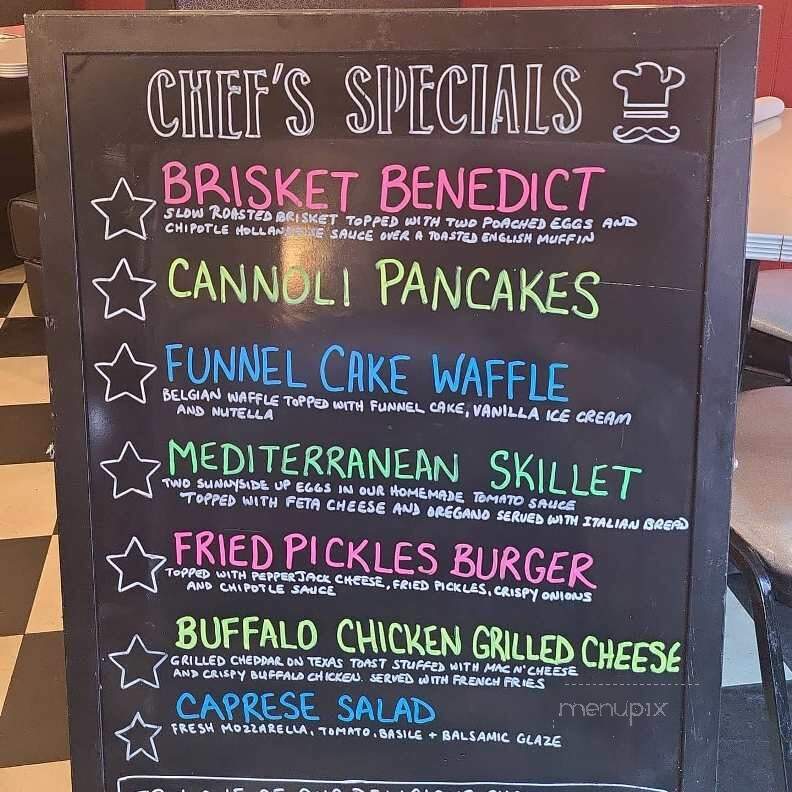 CHEF'S SPECIALS
BRISKET BENEDICT
SLOW ROASTED BRISKET TOPPED WITH TWO POACHED EGGS AND
CHIPOTLE HOLLANDAISE SAUCE OVER A TOASTED ENGLISH MUFFIN
CANNOLI PANCAKES
FUNNEL CAKE WAFFLE
BELGIAN WAFFLE TOPPED WITH FUNNEL CAKE, VANILLA ICE CREAM
AND NUTELLA
MEDITERRANEAN SKILLET
TWO SUNNYSIDE UP EGGS IN OUR HOMEMADE TOMATO SAUCE
TOPPED WITH FETA CHEESE AND OREGANO SERVED WITH ITALIAN BREAD
FRIED PICKLES BURGER
TOPPED WITH PEPPERJACK CHEESE, FRIED PICKLES, CRISPY ONIONS
AND CHIPOTLE SAUCE
BUFFALO CHICKEN GRILLED CHEESE
GRILLED CHEDDAR ON TEXAS TOAST STUFFED WITH MAC N' CHEESE
AND CRISPY BUFFALO CHICKEN. SERVED WITH FRENCH FRIES
CAPRESE SALAD
FRESH MOZZARELLA, TOMATO, BASILE + BALSAMIC GLAZE
menupix